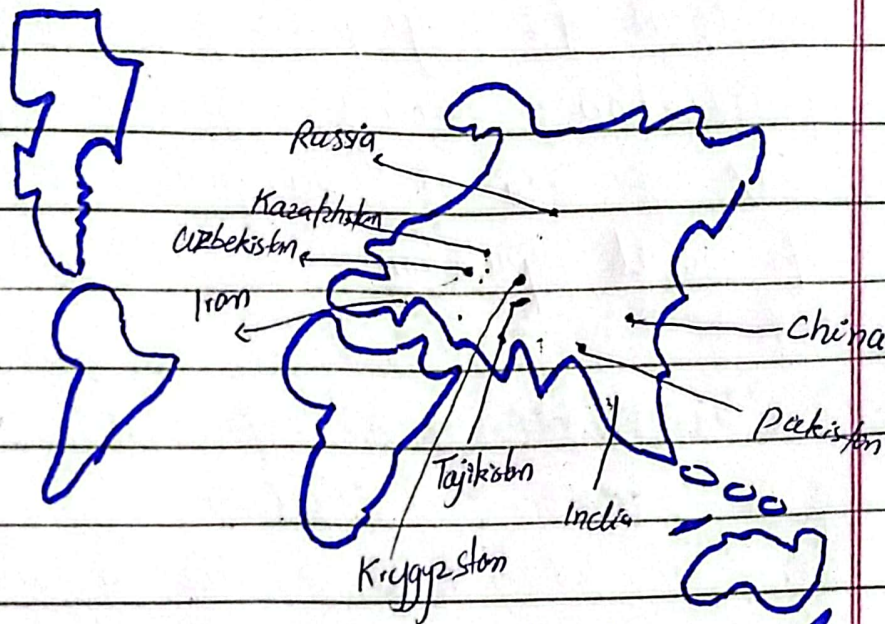 Russia
Kazakhstan
Uzbekistan
Iran
China
Pakistan
Tajikistan
India
Krygyzstan